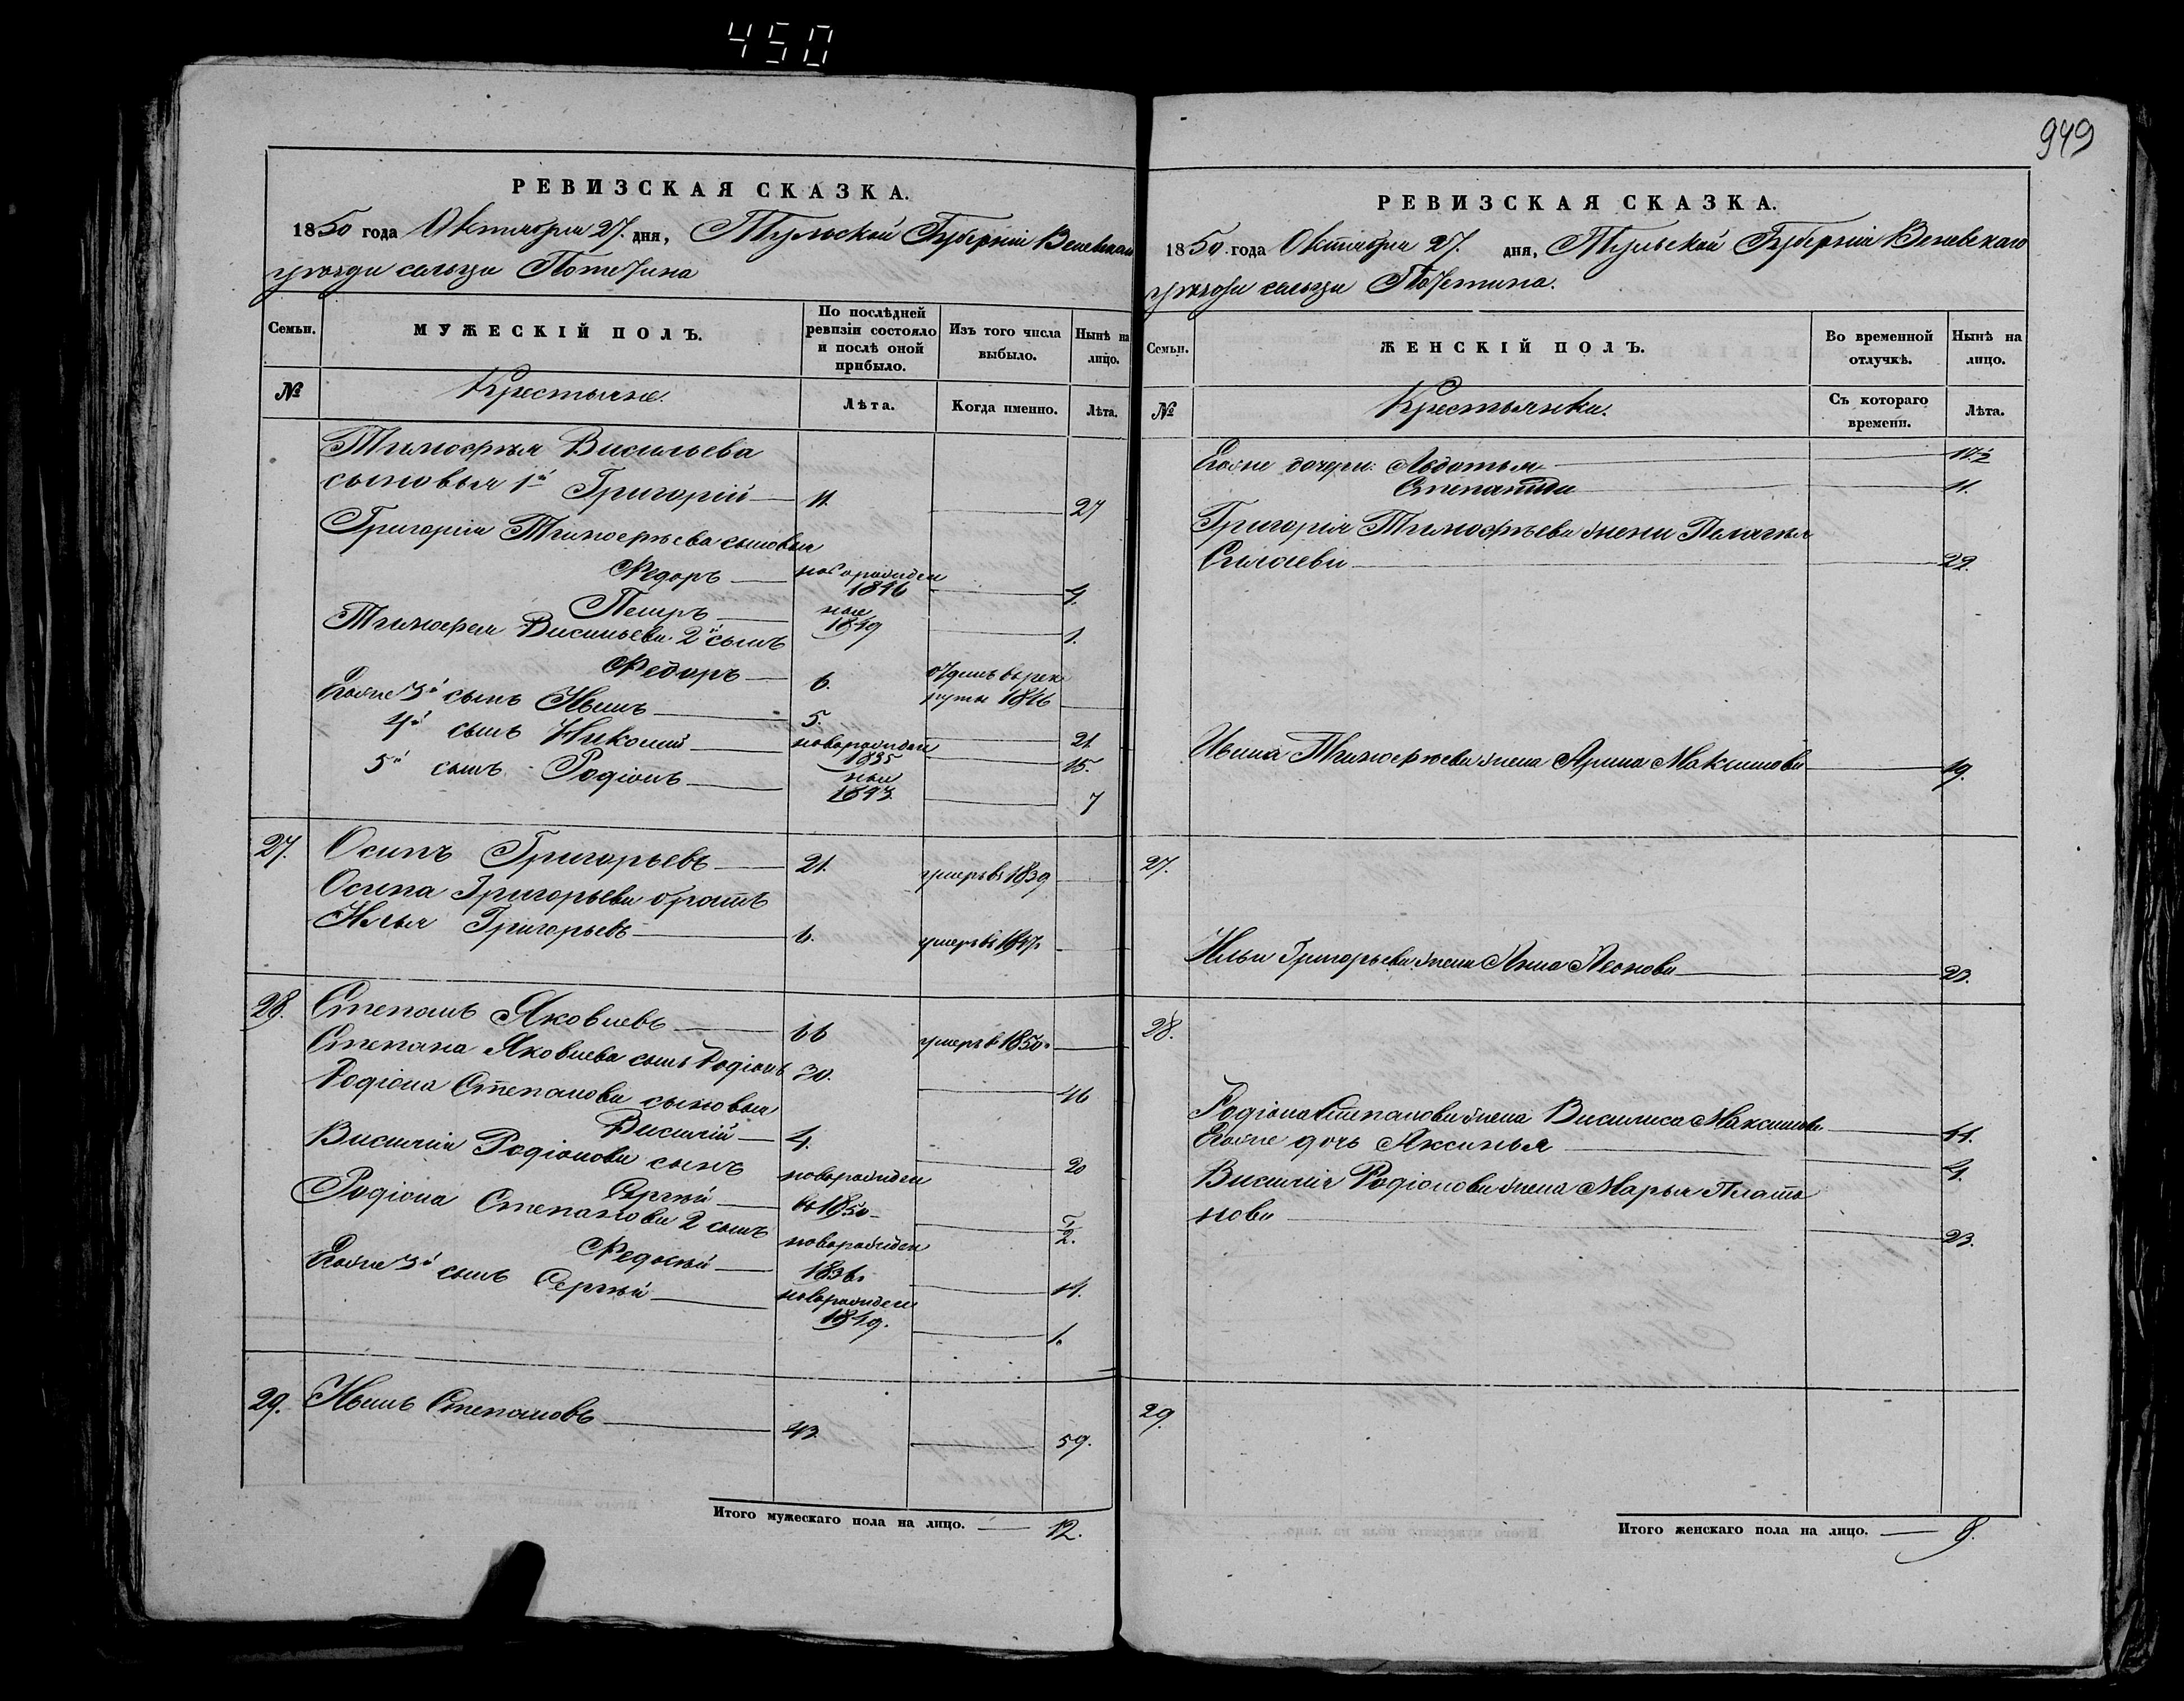 450
РЕВИЗСКАЯ СКАЗКА.
1850 года Октября 27. дня, Тульской Губерніи Веневскаго
уезда сельца Потетина
Семьи.
МУЖЕСКІЙ ПОЛЪ.
По послѣдней
ревизіи состояло
и послѣ оной
прибыло.
Изъ того числа
выбыло.
Нынѣ на
лицо.
№
Крестьяне.
Лѣта.
Когда именно.
Лѣта.
Тимофѣя Васильева
сыновья 1й Григорій 11. 27
Григорія Тимофѣева сыновья
Федоръ новорожден 1846 4.
Петръ 1849 1.
Тимофея Васильева 2й сынъ
Федоръ 6. отданъ в рек
руты 1846
Егоже 3й сынъ Иванъ 5. 21
4й сынъ Николай новорожден 1835 15.
5й сынъ Родіонъ 1843. 7
27. Осипъ Григорьевъ 21. умеръ въ 1839
Осипа Григорьева братъ
Илья Григорьевъ 6. умеръ въ 1847.
28. Степанъ Яковлевъ 66 умеръ в 1850.
Степана Яковлева сынъ Родіонъ 30. 46
Родіона Степанова сыновья
Василій 4. 20
Василія Родіонова сынъ
Сергѣй новорожден в 1850 1/2.
Родіона Степанова 2 сынъ
Федосѣй новорожден 1836. 14.
Егоже 3й сынъ Сергѣй новорожден 1849. 1.
29. Иванъ Степановъ 43. 59.
Итого мужескаго пола на лицо. 12.
949
РЕВИЗСКАЯ СКАЗКА.
1850 года Октября 27. дня, Тульской Губерніи Веневскаго
уезда сельца
Семьи.
ЖЕНСКІЙ ПОЛЪ.
Во временной
отлучкѣ.
Нынѣ на
лицо.
№
Крестьянки.
Съ котораго
времени.
Лѣта.
Егоже дочери: Авдотья
Степанида 11.
Григорія Тимофѣева жена Пелагѣя
Силаева 22.
Ивана Тимофѣева жена Арина Максимова 19.
27.
Ильи Григорьева жена Анна Леонова 23.
28.
Родіона Степанова жена Василиса Максимова 44.
Егоже дочь Аксинья 4.
Василія Родіонова жена Марья Плато
нова 23.
29.
Итого женскаго пола на лицо. 8.